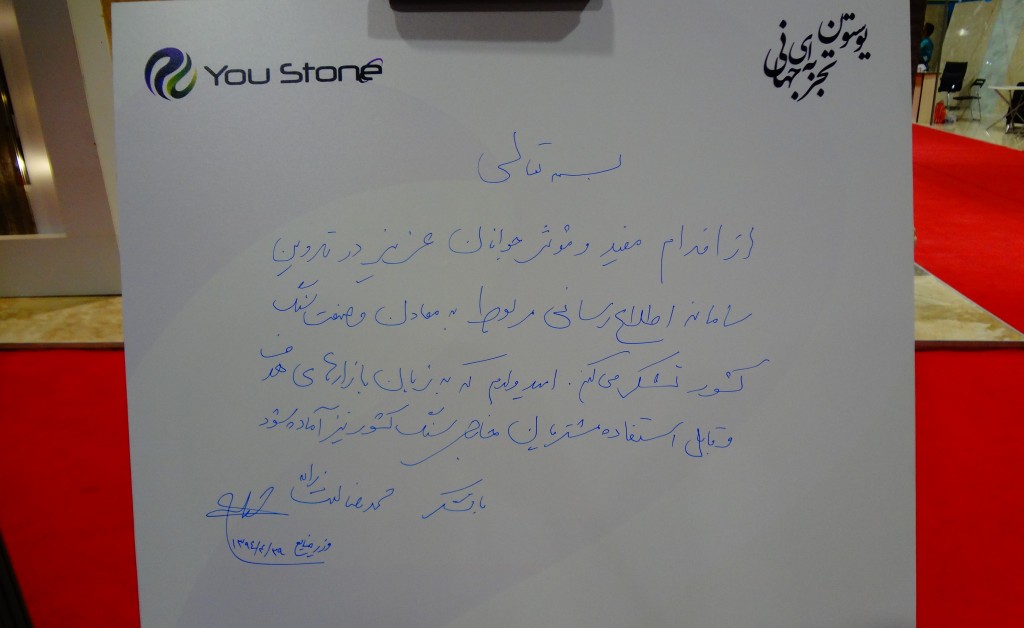 You Stone
یوستون
تجربه ای جهانی
بسمه تعالی
از اقدام مفید و موثر جوانان عزیز در تدوین
سامانه اطلاع رسانی مربوط به معادن و صنعت سنگ
کشور تشکر می کنم. امیدوارم که به زبان بازارهای هدف
و قابل استفاده مشتریان خارجی سنگ کشور نیز آماده شود
با تشکر
محمدرضا نعمت زاده
وزیر صنایع
۱۳۹۴/۴/۲۹